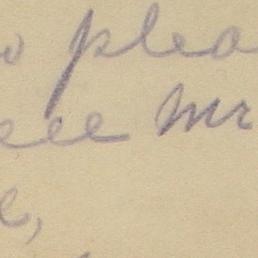 o plea
ee Mr
e,